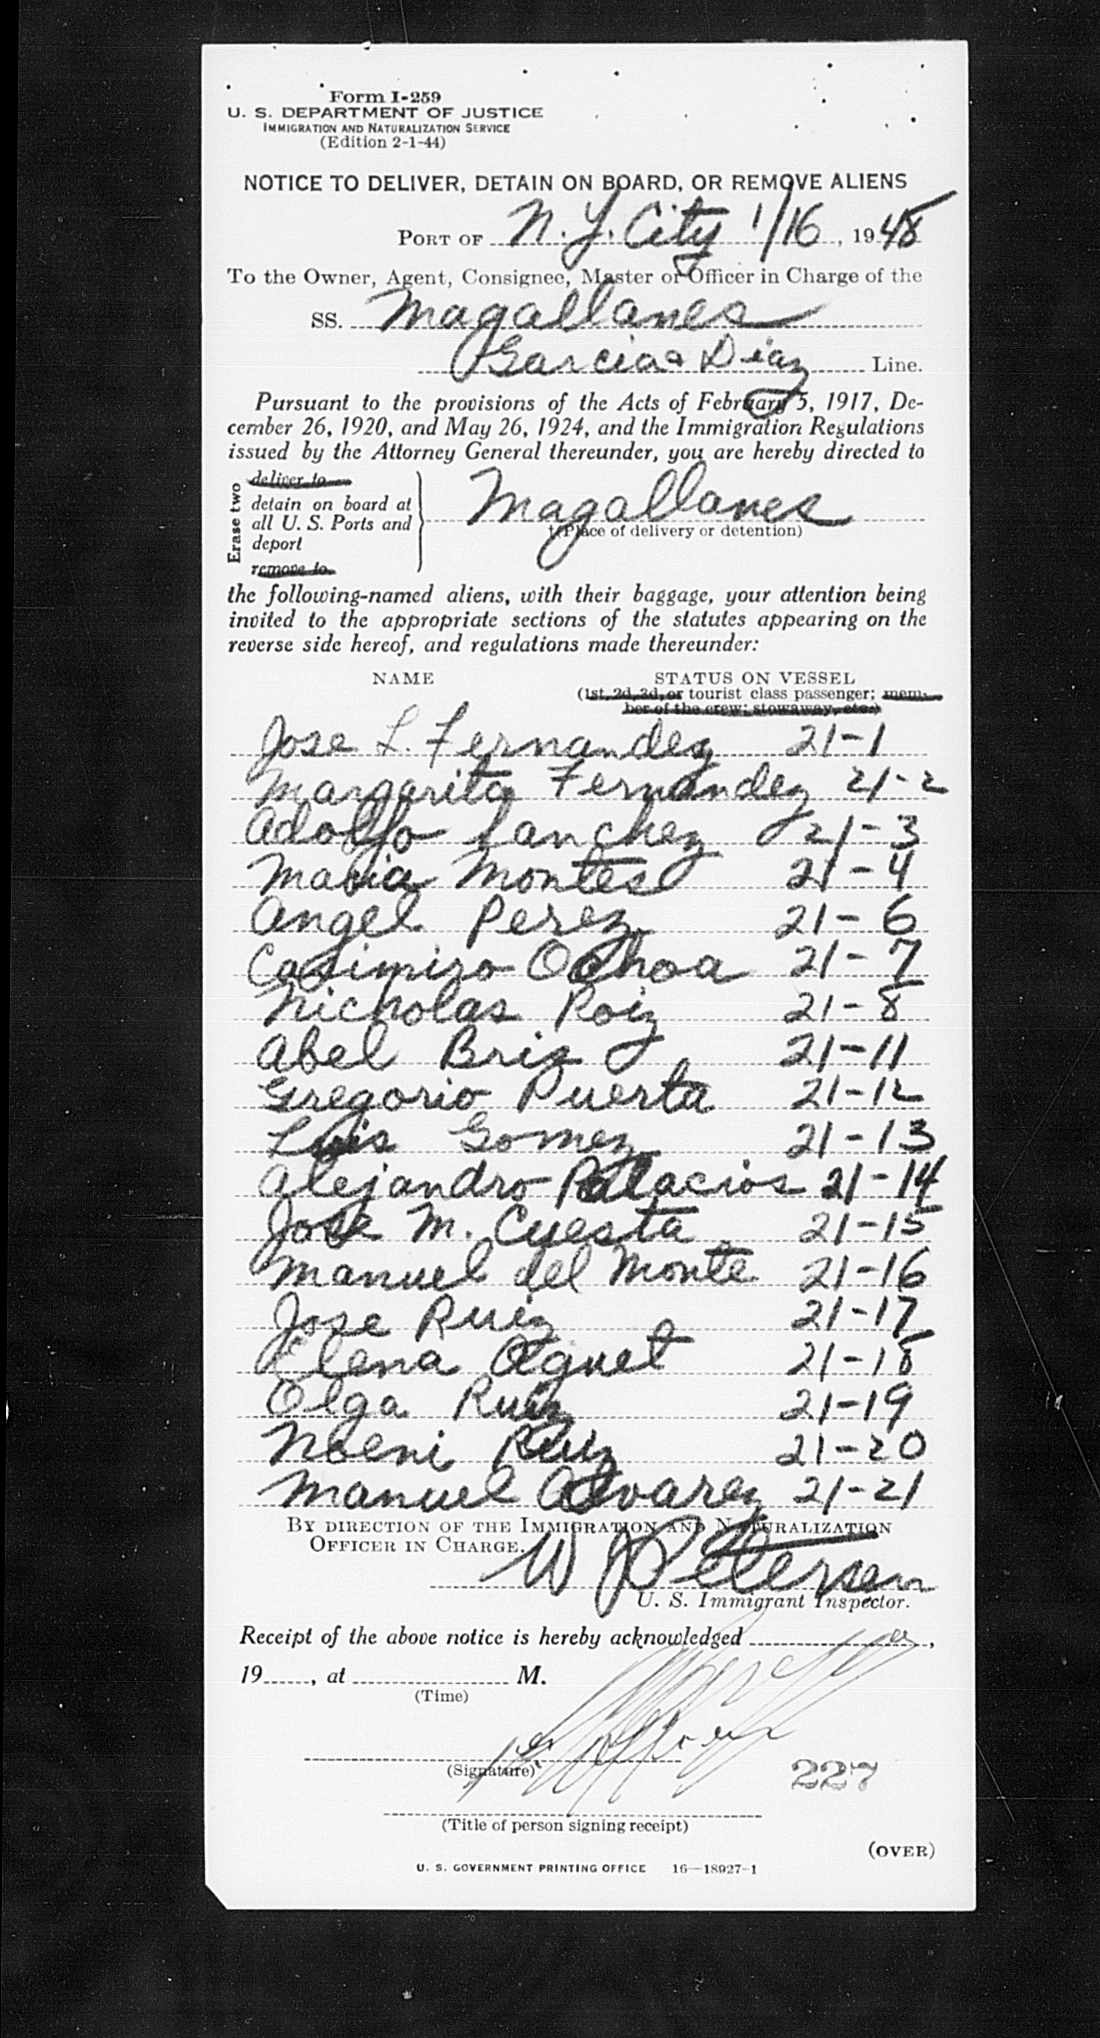 Form I-259
U. S. DEPARTMENT OF JUSTICE
IMMIGRATION AND NATURALIZATION SERVICE
(Edition 2-1-44)
NOTICE TO DELIVER, DETAIN ON BOARD, OR REMOVE ALIENS
PORT OF N. Y. City 1/16, 1948
To the Owner, Agent, Consignee, Master or Officer in Charge of the
SS. Magallanes
Garcia & Diaz Line.
Pursuant to the provisions of the Acts of February 5, 1917, De-
cember 26, 1920, and May 26, 1924, and the Immigration Regulations
issued by the Attorney General thereunder, you are hereby directed to
Erase two
deliver to
detain on board at
all U. S. Ports and
deport
remove to
Magallanes
(Place of delivery or detention)
the following-named aliens, with their baggage, your attention being
invited to the appropriate sections of the statutes appearing on the
reverse side hereof, and regulations made thereunder:
NAME STATUS ON VESSEL
(1st, 2d, 3d, or tourist class passenger; mem-
ber of the crew; stowaway, etc.)
Jose L. Fernandez 21-1
Margarita Fernandez 21-2
Adolfo Sanchez 21-3
Maria Montes 21-4
Angel Perez 21-6
Casimiro Ochoa 21-7
Nicholas Roiz 21-8
Abel Briz 21-11
Gregorio Puerta 21-12
Luis Gomez 21-13
Alejandro Palacios 21-14
Jose M. Cuesta 21-15
Manuel del Monte 21-16
Jose Ruiz 21-17
Elena Aguet 21-18
Olga Ruiz 21-19
Noeni Ruiz 21-20
Manuel Alvarez 21-21
BY DIRECTION OF THE IMMIGRATION AND NATURALIZATION
OFFICER IN CHARGE.
W J Petersen
U. S. Immigrant Inspector.
Receipt of the above notice is hereby acknowledged ,
19 , at M.
(Time)
(Signature)
227
(Title of person signing receipt)
(OVER)
U. S. GOVERNMENT PRINTING OFFICE 16—18927-1